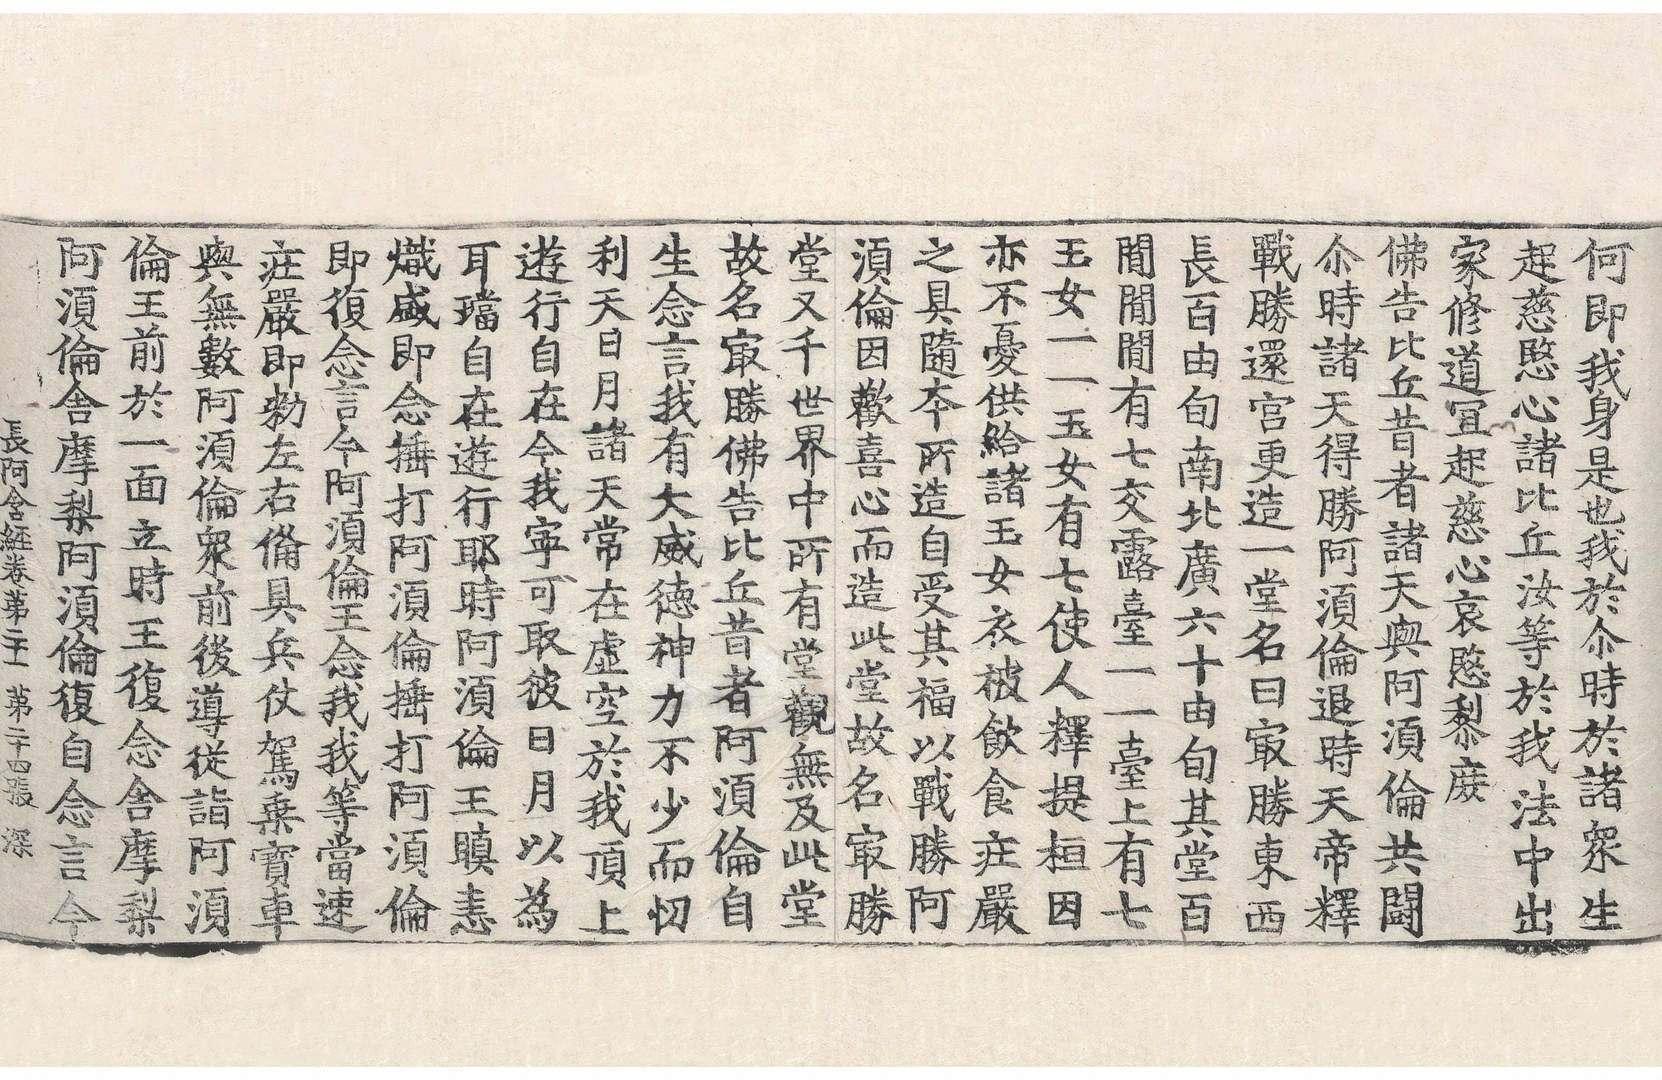 何即我身是也我於尒時於諸衆生
起慈愍心諸比丘汝等於我法中出
家修道冝起慈心哀愍黎庶
佛告比丘昔者諸天與阿須倫共鬪
尒時諸天得勝阿須倫退時天帝釋
戰勝還宮更造一堂名曰㝡勝東西
長百由旬南北廣六十由旬其堂百
閒閒閒有七交露臺一一臺上有七
玉女一一玉女有七使人釋提桓因
亦不憂供給諸玉女衣被飲食莊嚴
之具隨夲所造自受其福以戰勝阿
須倫因歡喜心而造此堂故名㝡勝
堂又千世界中所有堂觀無及此堂
故名㝡勝佛告比丘昔者阿須倫自
生念言我有大威德神力不少而忉
利天日月諸天常在虛空於我頂上
遊行自在今我寜可取彼日月以為
耳璫自在遊行耶時阿須倫王瞋恚
熾盛即念捶打阿須倫捶打阿須倫
即復念言今阿須倫王念我我等當速
莊嚴即勑左右俻具兵仗駕乗寶車
與無數阿須倫衆前後導從詣阿須
倫王前於一面立時王復念舍摩梨
阿須倫舍摩梨阿須倫復自念言今
長阿含經卷第二十一 第二十四張 深